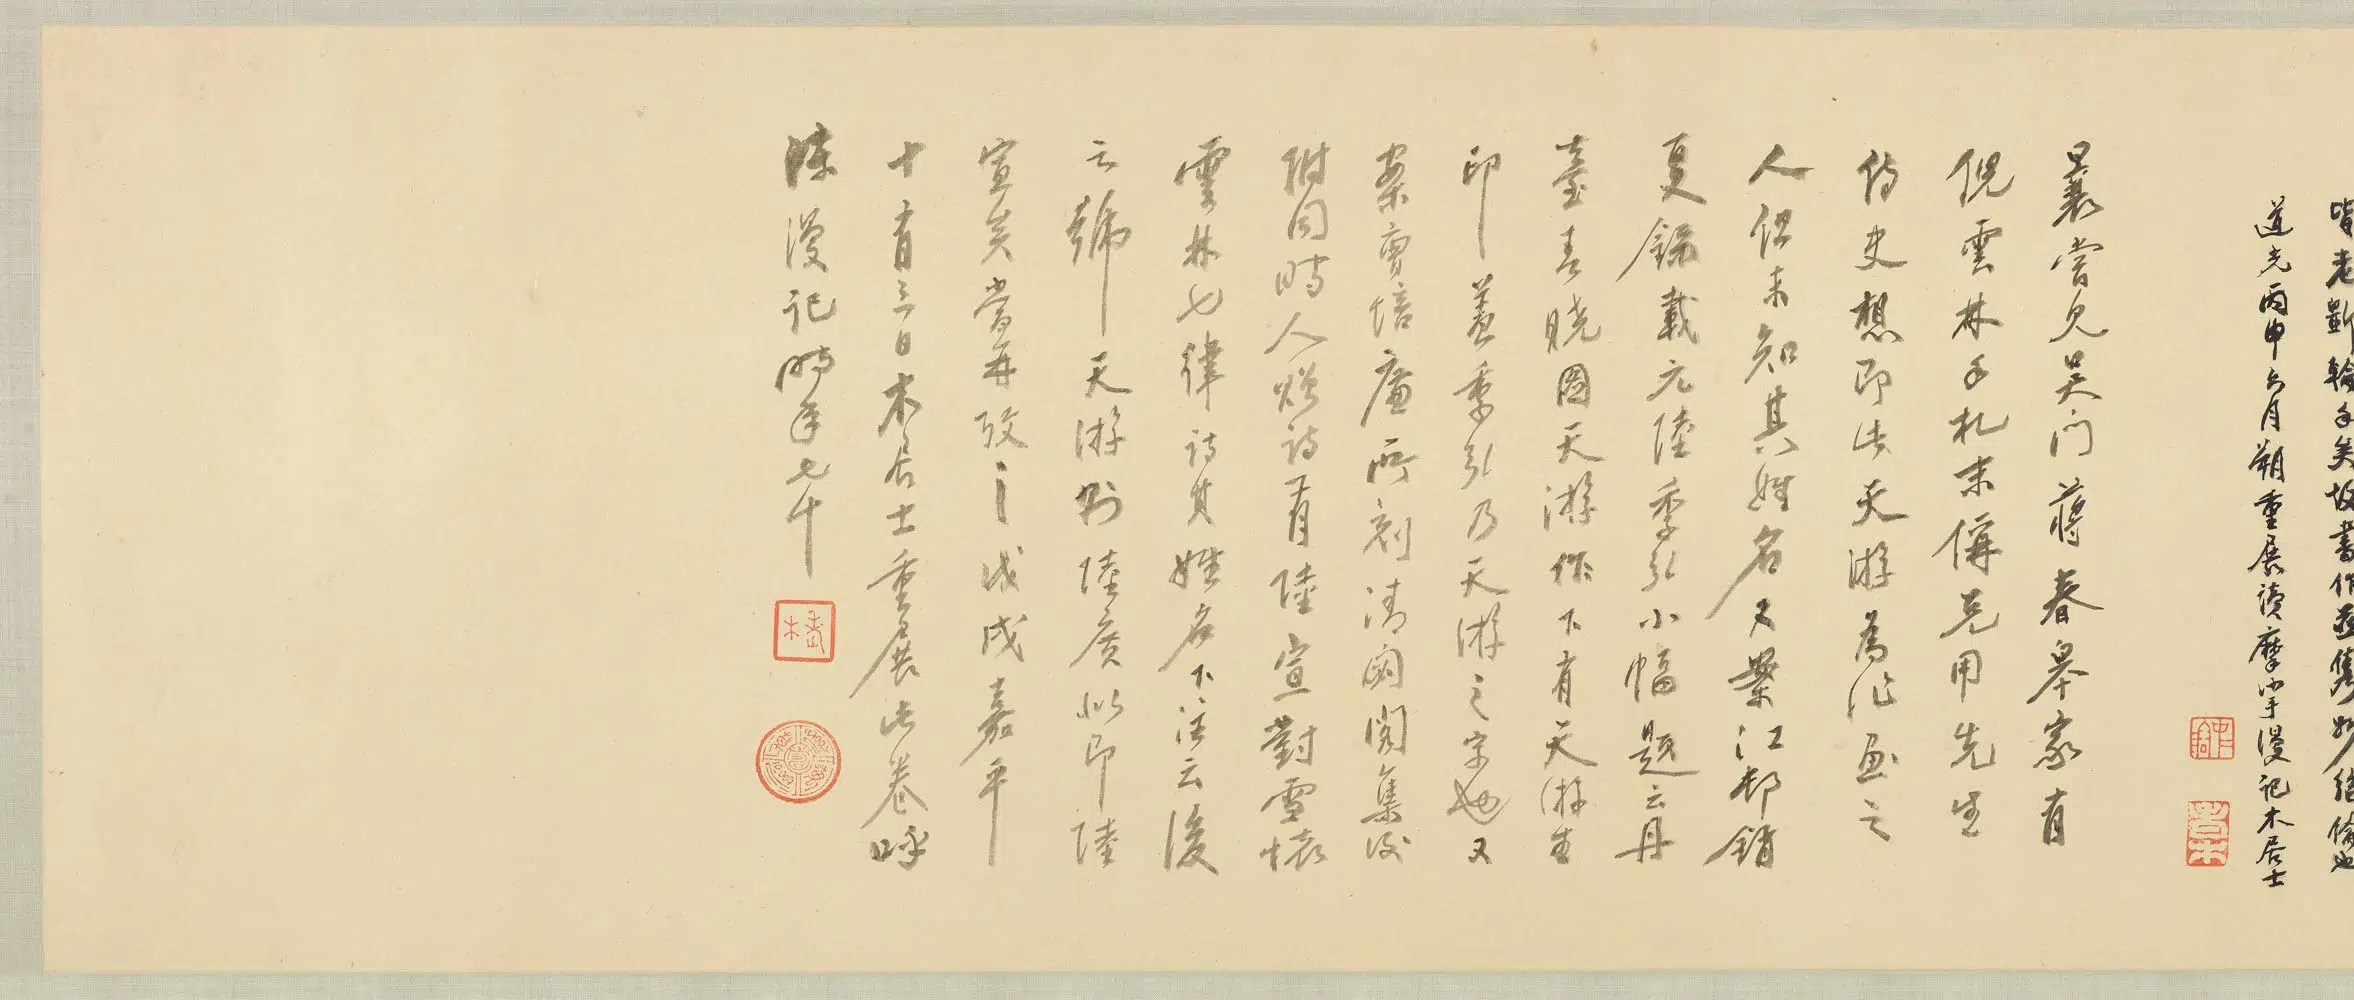 皆老斲輪手矣故書作並雋妙絕倫也
道光丙申六月朔重展讀摩挲漫記木居士
曩嘗見吳門蔣春皋家有
倪雲林手札末偁兄用先生
侍史想即此天游為作畫之
人但未知其姓名又攷江邨銷
夏錄載元陸季弘小幅題云丹
臺春曉圖天游作下有天游生
印蓋季弘乃天游之字也又
案曹培廉所刻清閟閣集後
附同時人贈詩有陸宣對雪懷
雲林七律詩其姓名下注云後
云號天游別陸廣似即陸
宣矣當再攷之戊戌嘉平
十有三日木居士重展此卷呼
凍漫記時年七十